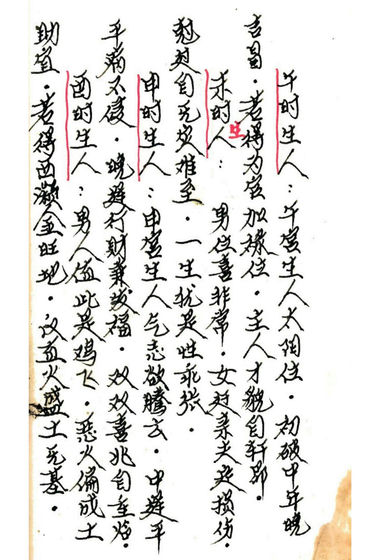 午时生人：午宫生人太阳位．初破中年晚
吉昌．若得为官加禄位．主人才貌自轩昂．
未时生人：男位喜非常．女好弄夫是损伤．
自无定难至．一生犹是性乖张．
申时生人：申宫生人气志欲腾去．中遇平
平病不侵．晚遇行财兼发福．双双喜兆自重
酉时生人：男人值此是鸡飞．恶火偏成土
助宜．若得西濒金旺地．议直火盛土无基．